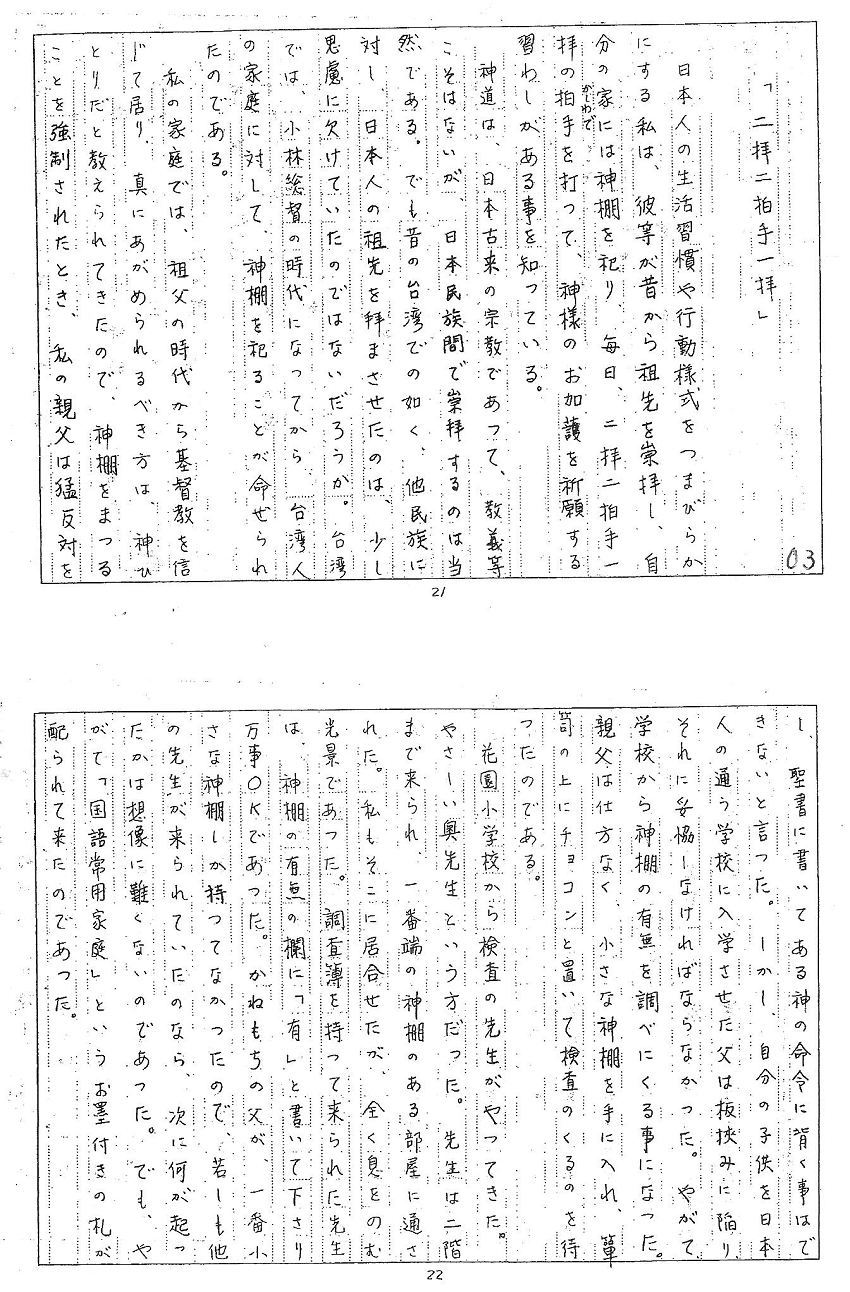 03
「二拝二拍手一拝」
日本人の生活習慣や行動様式をつまびらか
にする私は、彼等が昔から祖先を崇拝し、自
分の家には神棚を祀り、毎日、二拝二拍手一
拝の拍手を打つて、神様のお加護を祈願する
かしわで
習わしがある事を知っている。
神道は、日本古来の宗教であつて、教義等
こそはないが、日本民族間で崇拝するのは当
然である。でも昔の台湾での如く、他民族に
対し、日本人の祖先を拝まさせたのは、少し
思慮に欠けていたのではないだろうか。台湾
では、小林総督の時代になってから、台湾人
の家庭に対して、神棚を祀ることが命せられ
たのである。
私の家庭では、祖父の時代から基督教を信
じて居り、真にあがめられるべき方は、神ひ
とりだと教えられてきたので、神棚をまつる
ことを強制されたとき、私の親父は猛反対を
21
し、聖書に書いてある神の命令に背く事はで
きないと言つた。しかし、自分の子供を日本
人の通う学校に入学させた父は板挟みに陥り、
それに妥協しなければならなかった。やがて、
学校から神棚の有無を調べにくる事になつた。
親父は仕方なく、小さな神棚を手に入れ、箪
笥の上にチョコンと置いて検査のくるのを待
つたのである。
花園小学校から検査の先生がやつてきた。
やさしい奥先生という方だった。先生は二階
まで来られ、一番端の神棚のある部屋に通さ
れた。私もそこに居合せたが、全く息をのむ
光景であつた。調査簿を持つて来られた先生
は、神棚の有無の欄に「有」と書いて下さり
万事OKであつた。かねもちの父が、一番小
さな神棚しか持つてなかつたので、若しも他
の先生が来られていたのなら、次に何が起っ
たかは想像に難くないのであつた。でも、や
がて「国語常用家庭」というお墨付きの札が
配られて来たのであつた。
22